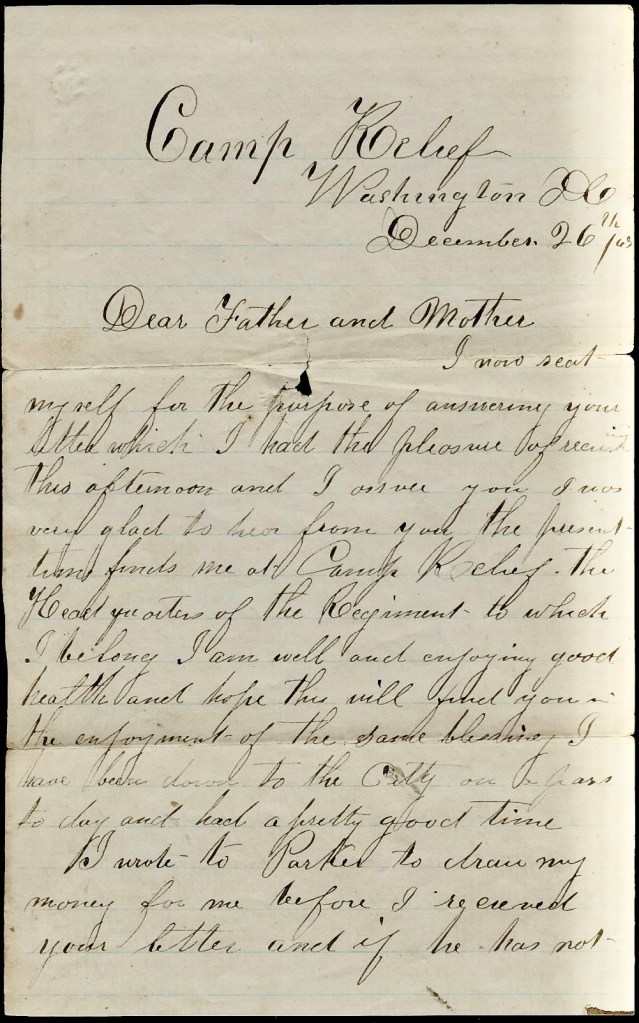 Camp Relief
Washington DC
December. 26th /63
Dear Father and Mother
I now seat
myself for the purpose of answering your
letter which I had the pleasure of
this afternoon and I you I was
very glad to hear from you the present
time finds me at Camp Relief. the
Head quarters of the Regiment to which
I belong I am well and enjoying good
health and hope this will find you in
the enjoyment of the same blessing I
have been down to the Citty on a pass
to day and had a pretty good time
I wrote to Parker to draw my
money for me before I recieved
your letter and if he has not